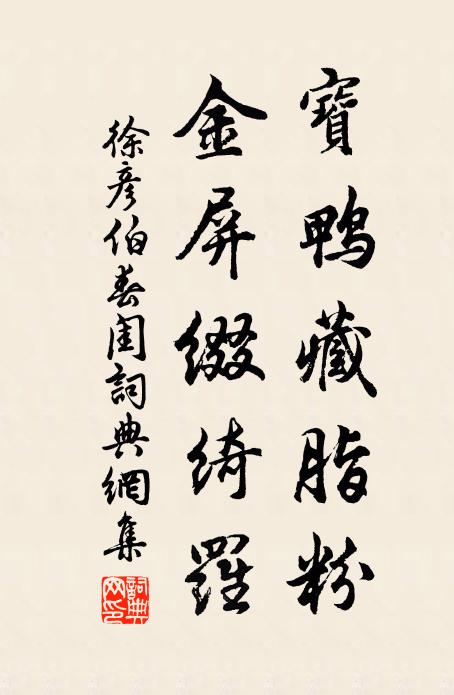 寶鴨藏脂粉
金屏綴綺羅
徐彦伯春閨詞典網集